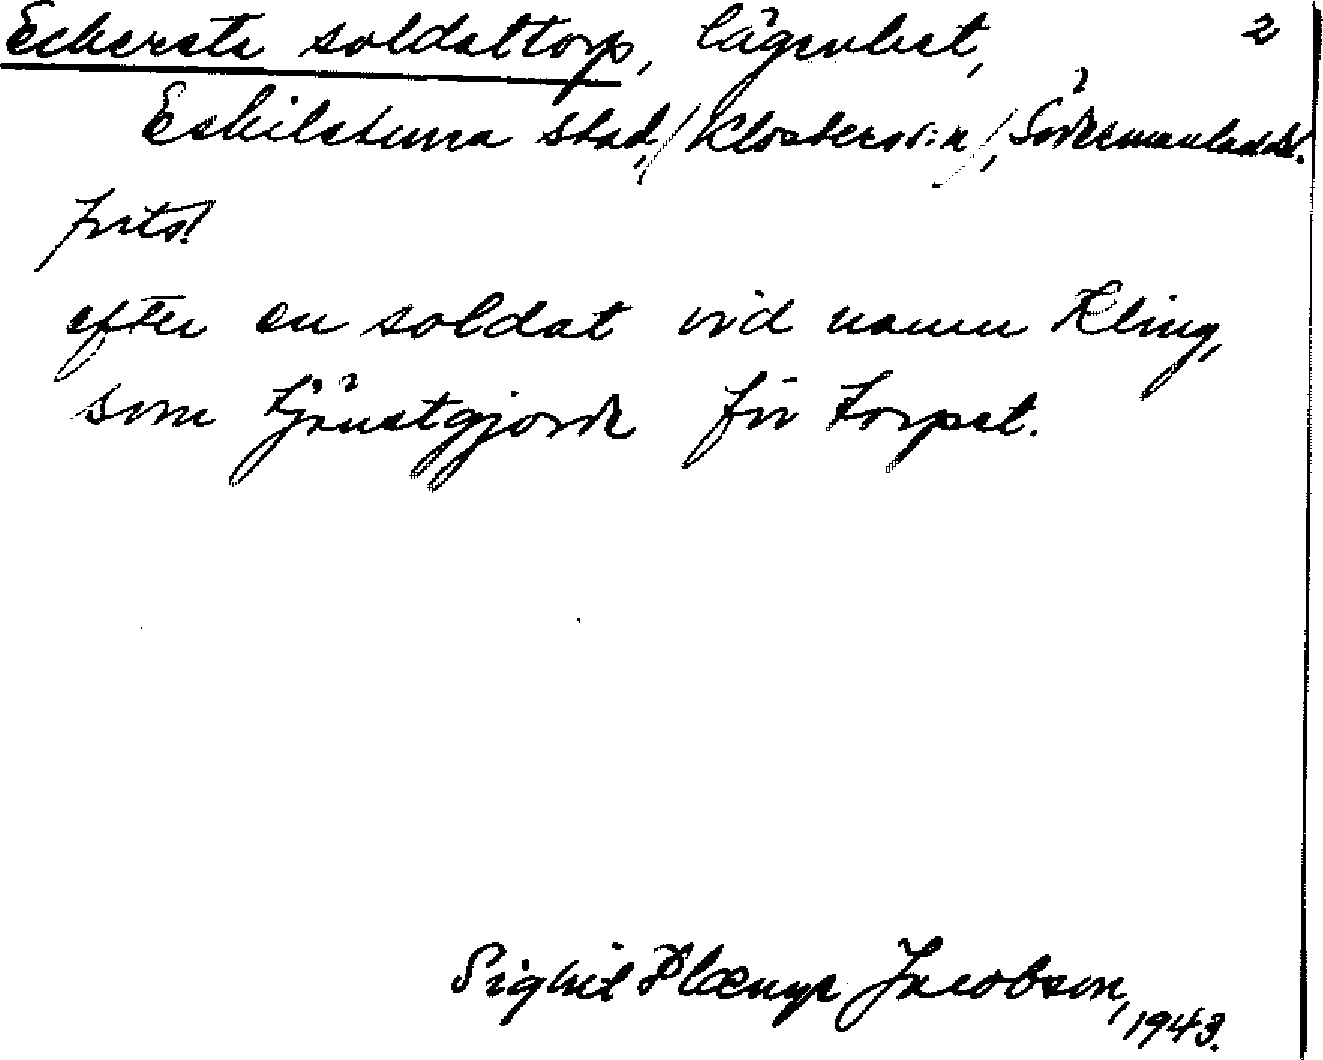 Eckersta soldattorp, lägenhet, 2
Eskilstuna stad, /Klosters s:n/, Södermanlands l.
forts!
efter en soldat vid namn Kling,
som tjänstgjorde för torpet.
Sighil Jacobson, 1943.